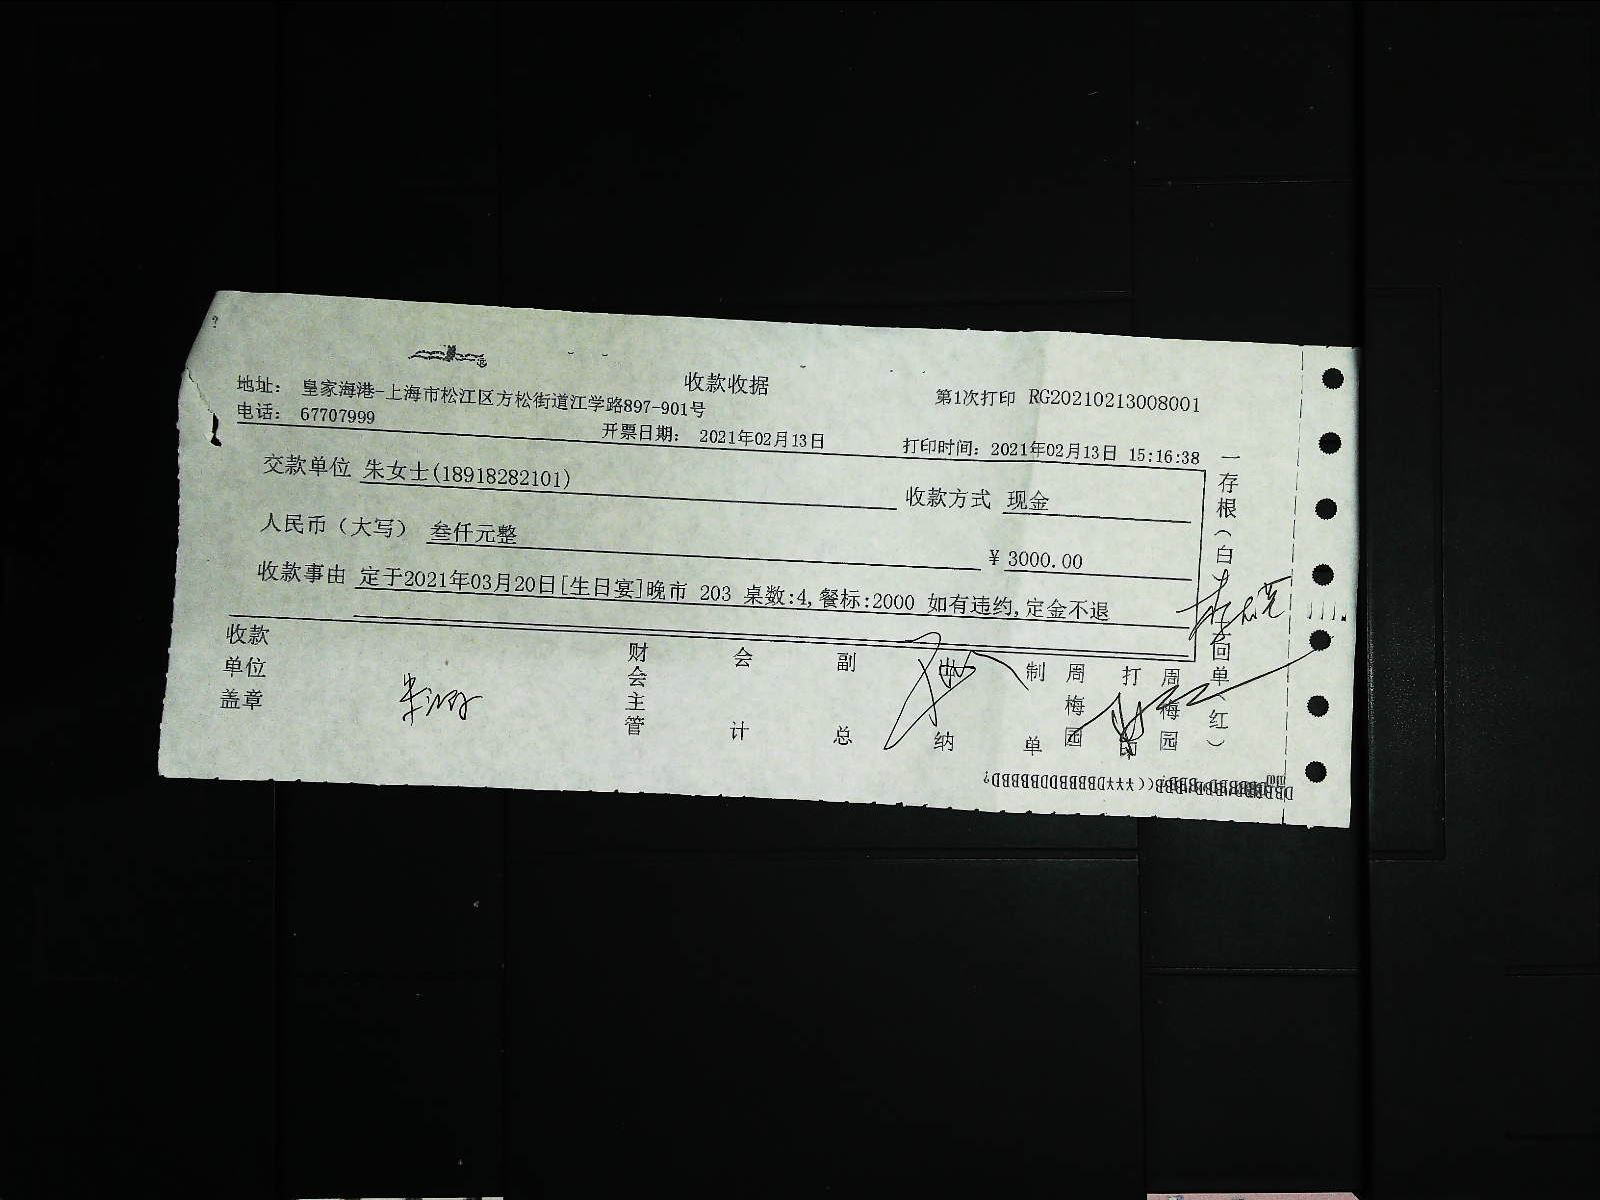 收款收据
地址： 皇家海港-上海市松江区方松街道江学路897-901号
第1次打印 RG20210213008001
电话： 67707999
开票日期： 2021年02月13日
打印时间：2021年02月13日 15:16:38
交款单位 朱女士(18918282101)
收款方式 现金
人民币（大写） 叁仟元整
￥3000.00
收款事由 定于2021年03月20日[生日宴]晚市 203 桌数:4,餐标:2000 如有违约,定金不退
收款单位盖章
财会主管
会计
副总
出纳
制单
周梅园
打印
周梅园
一存根（白
回单（红）